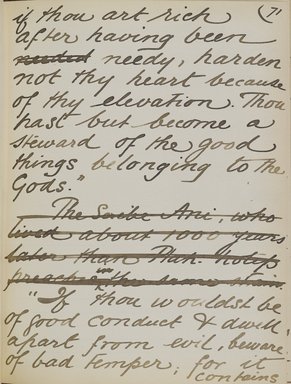 71
if thou art rich
after having been
needed needy, harden
not thy heart because
of thy elevation. Thou
hast but become a
steward of the good
things belonging to the
Gods."
The Scribe Ani, who
lived about 1000 years
later than Ptah-hotep
preaches in the same
"If thou wouldst be
of good conduct & dwell
apart from evil, beware
of bad temper; for it
contains